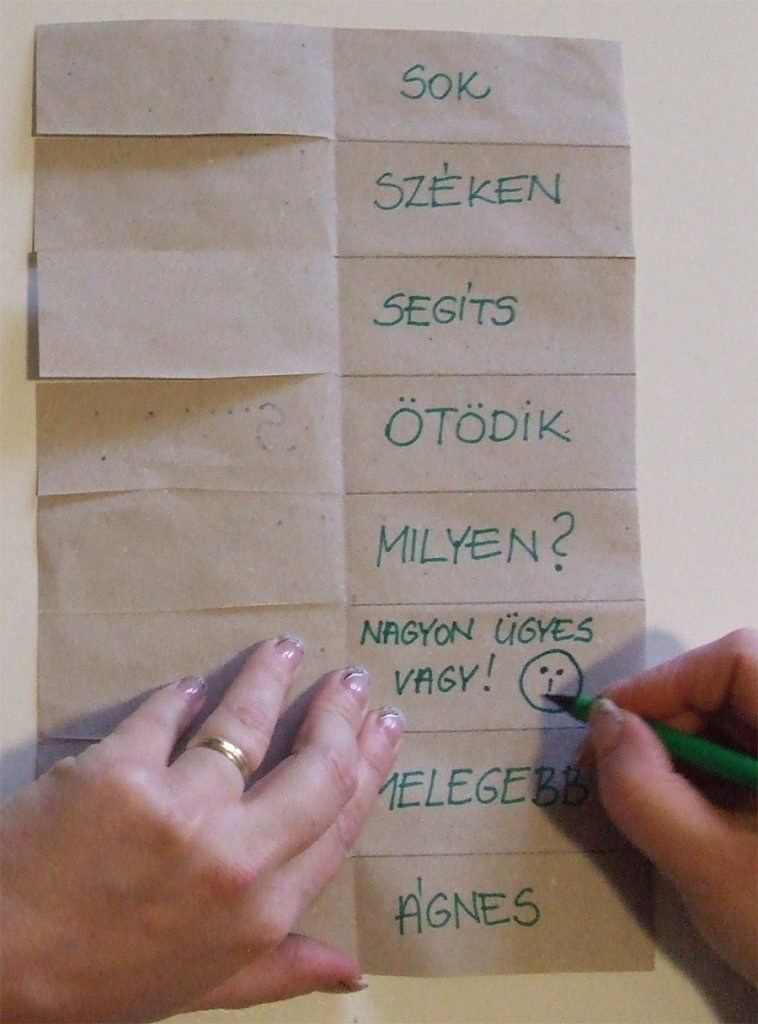 SOK
SZÉKEN
SEGÍTS
ÖTÖDIK
MILYEN?
NAGYON ÜGYES
VAGY!
MELEGEBB
ÁGNES